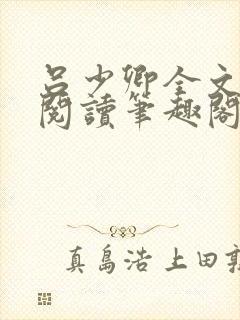 呂少卿全文
閱讀筆趣閣
真島浩 上田敦